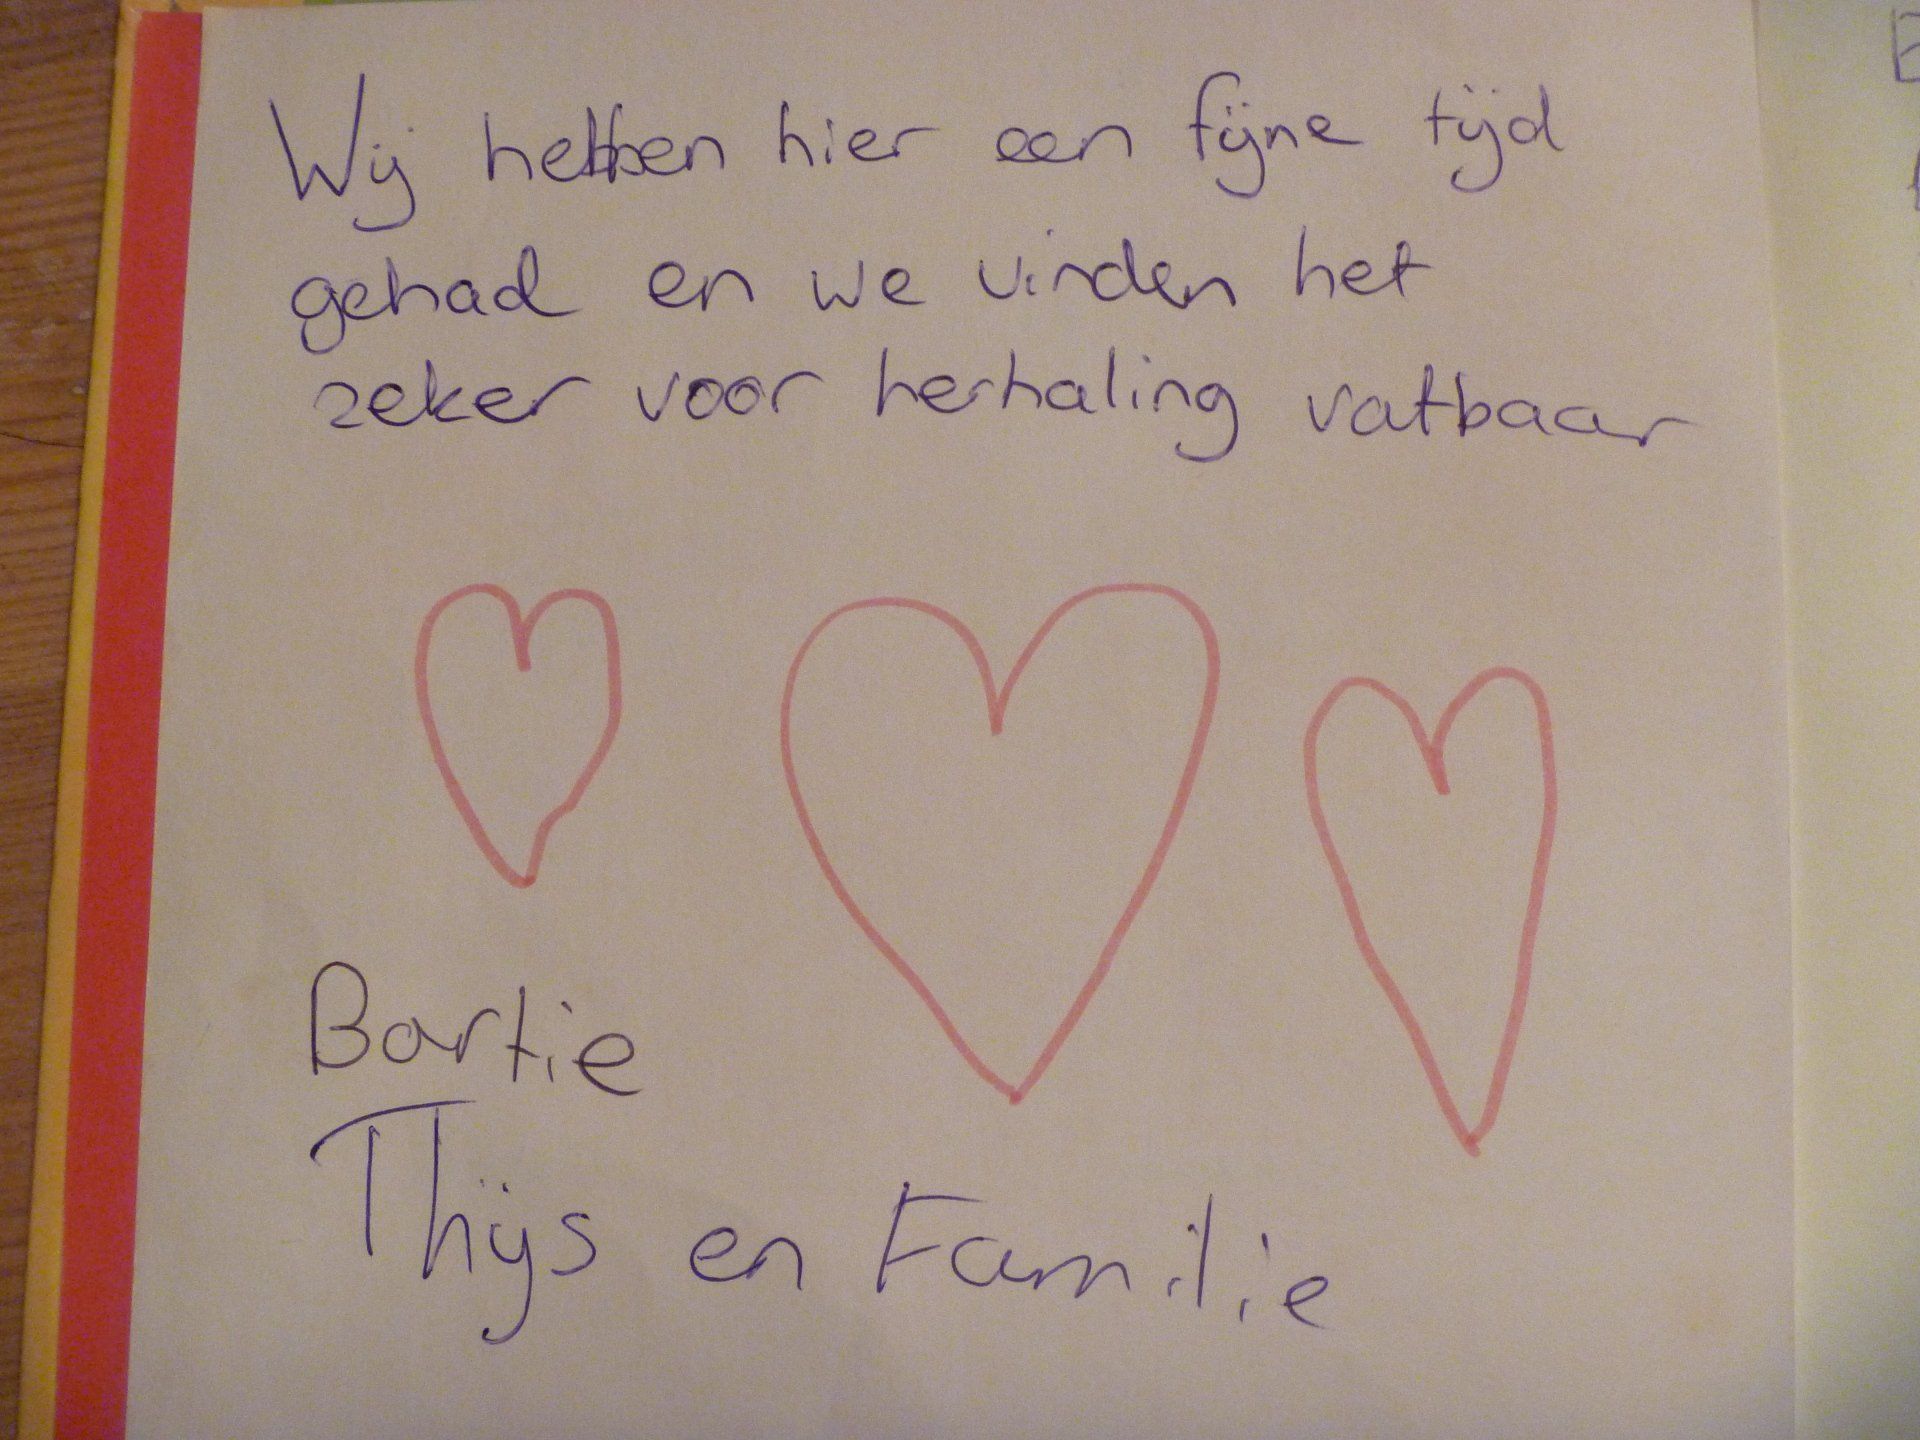 Wij hebben hier een fijne tijd
gehad en we vinden het
zeker voor herhaling vatbaar
Bartie
Thijs en Familie